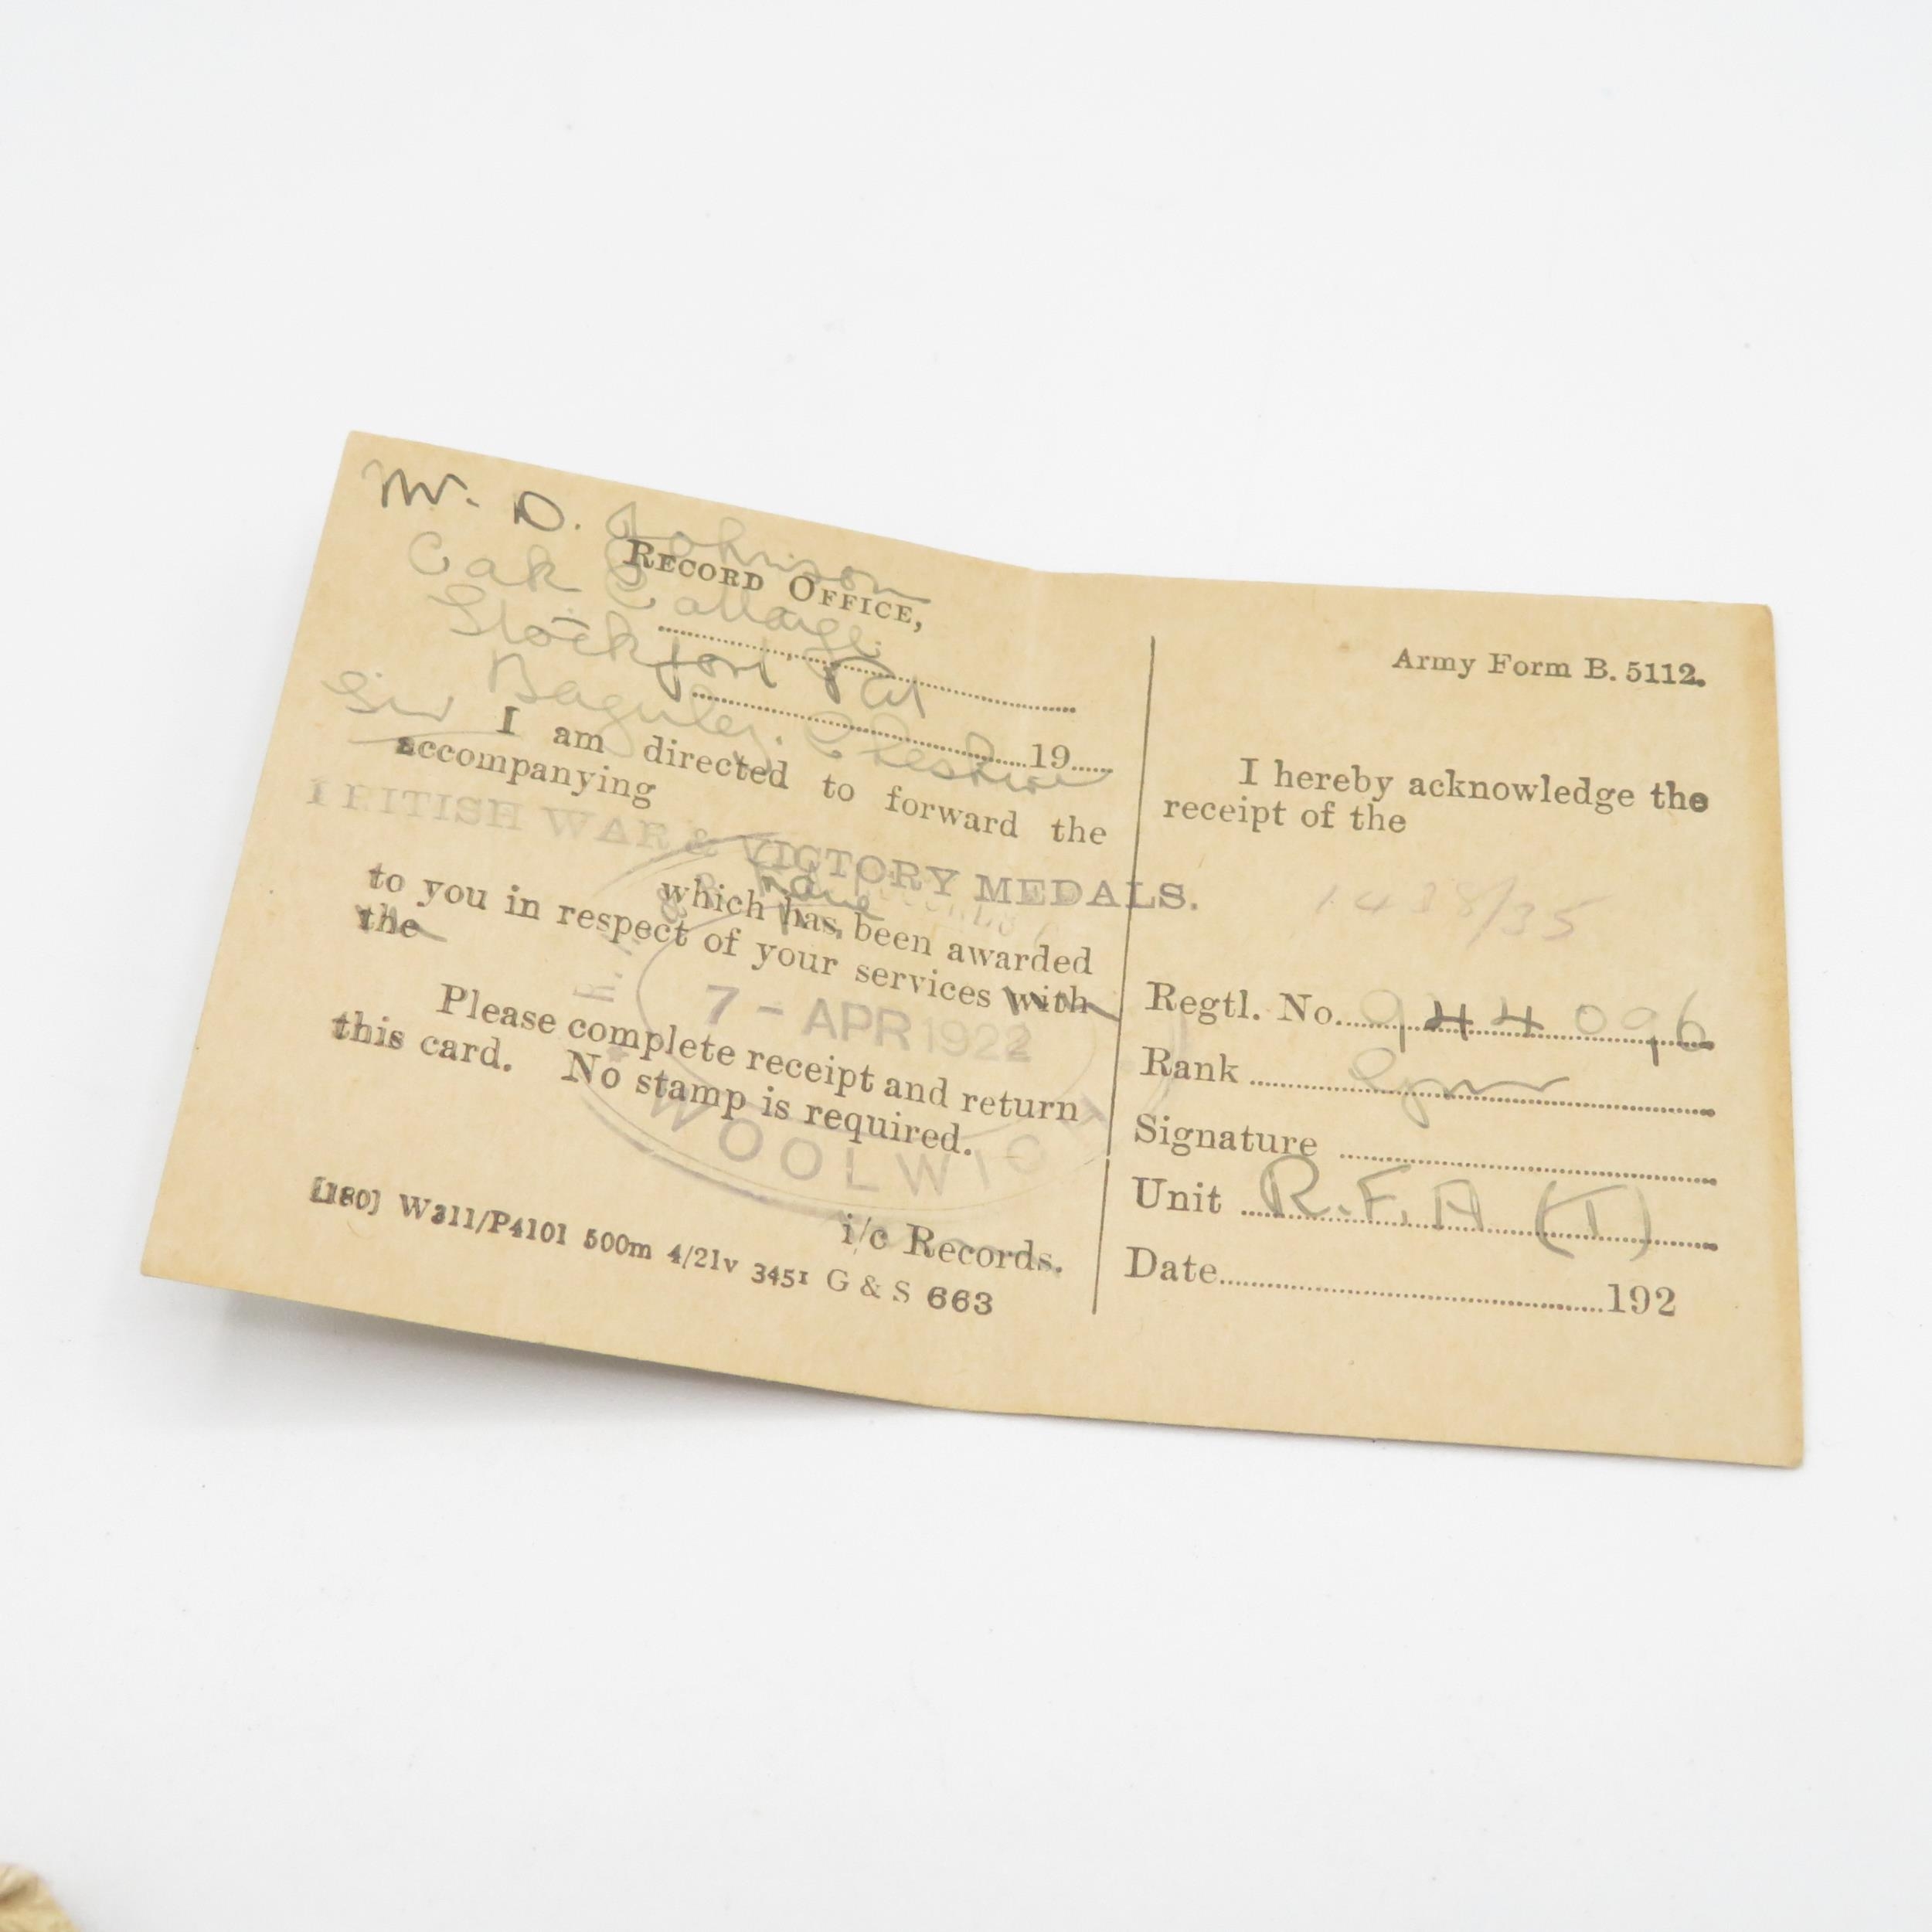 W. D. Johnson
Oak Cottage
Stockport Rd
Baguley. Cheshire
RECORD OFFICE,
19
Sir
I am directed to forward the
accompanying
BRITISH WAR & VICTORY MEDALS.
have
which has been awarded
to you in respect of your services with
the
Please complete receipt and return
this card. No stamp is required.
7 - APR 1922
WOOLWICH
i/c Records.
[180] W311/P4101 500m 4/21v 3451 G & S 663
Army Form B. 5112.
I hereby acknowledge the
receipt of the
1438/35
Regtl. No. 944096
Rank Gnr
Signature
Unit R.F.A (T)
Date 192